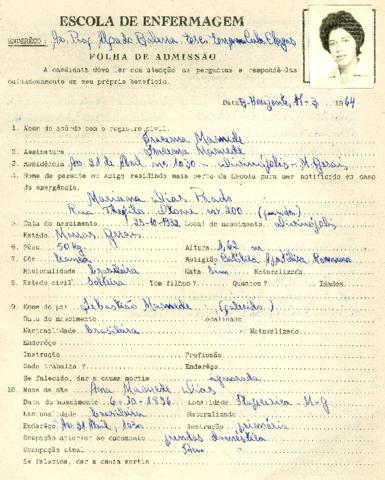 ESCOLA DE ENFERMAGEM
ENDERÊÇO: Av. Prof. Alfredo Balena
FÔLHA DE ADMISSÃO
A candidata deve ler com atenção as perguntas e respondê-las
cuidadosamente em seu próprio benefício.
Data B. Horizonte, 11/ 2/ 1964
1. Nome de acôrdo com o registro civil.
Mamede
2. Assinatura Mamede
3. Residência Av. 21 de Abril nº 1030 - Divinópolis - M. Gerais
4. Nome de parente ou amigo residindo mais perto da Escola para ser notificado em caso
de emergência.
Mariana Dias Prado
Rua nº 200
5. Data do nascimento 23-10-1932 Local do nascimento Divinópolis
Estado Minas Gerais
6. Pêso 50 kg Altura 1,62 m
7. Côr branca Religião Católica Apostólica Romana
Nacionalidade brasileira Nata Sim Naturalizada
8. Estado civil Solteira Tem filhos? Quantos? Idades
9. Nome do pai Sebastião Mamede (falecido)
Data do nascimento Localidade
Nacionalidade brasileira Naturalizado
Enderêço
Instrução Profissão
Onde trabalha? Enderêço
Se falecido, dar a causa mortis ignorada
10. Nome da mãe Ana Mamede Dias
Data do nascimento 6-10-1896 Localidade Itapecerica - M-G
Nacionalidade brasileira Naturalizada
Enderêço Av. 21 Abril, 1030 Instrução primária
Ocupação anterior ao casamento prendas domésticas
Ocupação atual
Se falecida, dar a causa mortis